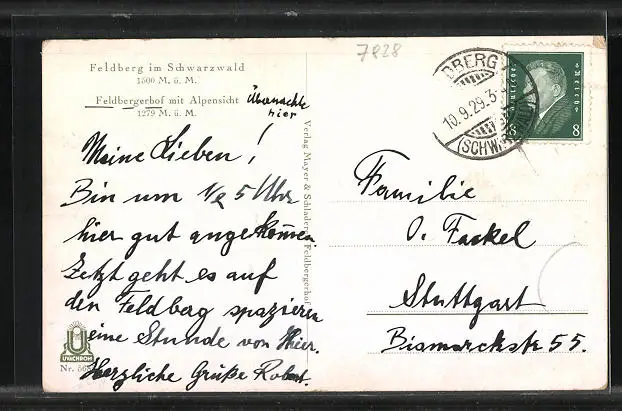 7828
Feldberg im Schwarzwald
1500 M. ü. M.
Feldbergerhof mit Alpensicht
1279 M. ü. M.
Übernachte
hier
Meine Lieben!
Bin um 1/2 5 Uhr
hier gut angekommen.
Jetzt geht es auf
den Feldberg spazieren
eine Stunde von Hier.
Herzliche Grüße Robert.
UVACHROM
Nr.
Verlag Mayer & Schladerer Feldbergerhof
DBERG
10.9.29.3
(SCHWARZWALD)
Deutsches Reich
8 8
Familie
O. Fackel
Stuttgart
Bismarckstr 55.